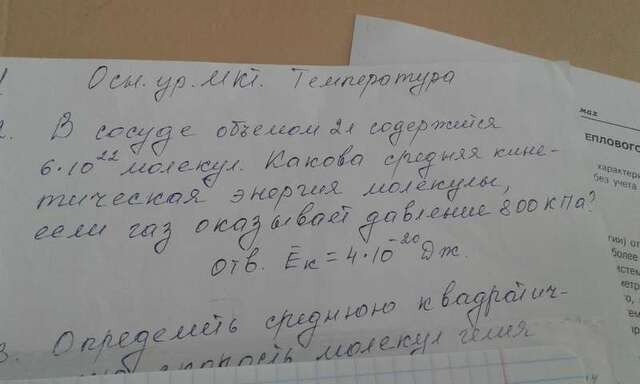 Осн. ур. МКТ. Температура
2. В сосуде объемом 2л содержится
6·10²² молекул. Какова средняя кине-
тическая энергия молекулы,
если газ оказывает давление 800 кПа?
Отв. Ēк = 4·10⁻²⁰ Дж.
3. Определить среднюю квадратич-
скорость молекул гелия
max
ЕПЛОВОГО
характери
без учета
гии) от
более
систем
метро